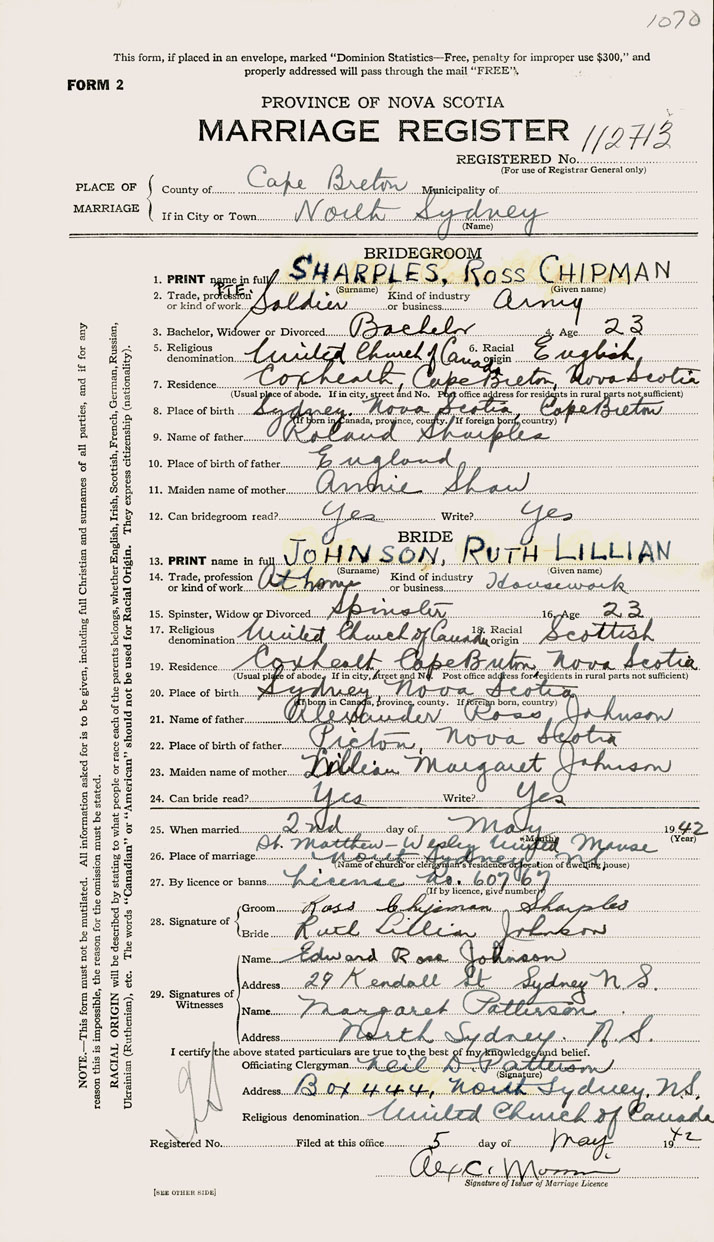 1070
This form, if placed in an envelope, marked "Dominion Statistics—Free, penalty for improper use $300," and
properly addressed will pass through the mail "FREE".
FORM 2
PROVINCE OF NOVA SCOTIA
MARRIAGE REGISTER 112713
REGISTERED No.
(For use of Registrar General only)
PLACE OF MARRIAGE
County of Cape Breton Municipality of
If in City or Town North Sydney
(Name)
BRIDEGROOM
1. PRINT name in full SHARPLES, ROSS CHIPMAN
(Surname) (Given name)
2. Trade, profession or kind of work Pte. Soldier Kind of industry or business Army
3. Bachelor, Widower or Divorced Bachelor 4. Age 23
5. Religious denomination United Church of Canada 6. Racial origin English
7. Residence Coxheath, Cape Breton, Nova Scotia
(Usual place of abode. If in city, street and No. Post office address for residents in rural parts not sufficient)
8. Place of birth Sydney, Nova Scotia, Cape Breton
(If born in Canada, province, county. If foreign born, country)
9. Name of father Roland Sharples
10. Place of birth of father England
11. Maiden name of mother Annie Shaw
12. Can bridegroom read? Yes Write? Yes
BRIDE
13. PRINT name in full JOHNSON, RUTH LILLIAN
(Surname) (Given name)
14. Trade, profession or kind of work At home Kind of industry or business Housework
15. Spinster, Widow or Divorced Spinster 16. Age 23
17. Religious denomination United Church of Canada 18. Racial origin Scottish
19. Residence Coxheath Cape Breton, Nova Scotia
(Usual place of abode. If in city, street and No. Post office address for residents in rural parts not sufficient)
20. Place of birth Sydney, Nova Scotia
(If born in Canada, province, county. If foreign born, country)
21. Name of father Alexander Ross Johnson
22. Place of birth of father Picton, Nova Scotia
23. Maiden name of mother Lillian Margaret Johnson
24. Can bride read? Yes Write? Yes
25. When married 2nd day of May 1942
(Month) (Year)
St. Matthew-Wesley United Manse
26. Place of marriage North Sydney, NS
(Name of church or clergyman's residence or location of dwelling house)
27. By licence or banns License No. 60767
(If by licence, give number)
28. Signature of
Groom Ross Chipman Sharples
Bride Ruth Lillian Johnson
29. Signatures of Witnesses
Name Edward Ross Johnson
Address 29 Kendall St Sydney N.S.
Name Margaret Patterson
Address North Sydney. N.S.
I certify the above stated particulars are true to the best of my knowledge and belief.
Officiating Clergyman Neil D. Patterson
(Signature)
Address Box 444, North Sydney, N.S.
Religious denomination United Church of Canada
Registered No. Filed at this office 5 day of May 1942
Alex C.
Signature of Issuer of Marriage Licence
[SEE OTHER SIDE]
NOTE.—This form must not be mutilated. All information asked for is to be given, including full Christian and surnames of all parties, and if for any
reason this is impossible, the reason for the omission must be stated.
RACIAL ORIGIN will be described by stating to what people or race each of the parents belongs, whether English, Irish, Scottish, French, German, Russian,
Ukrainian (Ruthenian), etc. The words "Canadian" or "American" should not be used for Racial Origin. They express citizenship (nationality).